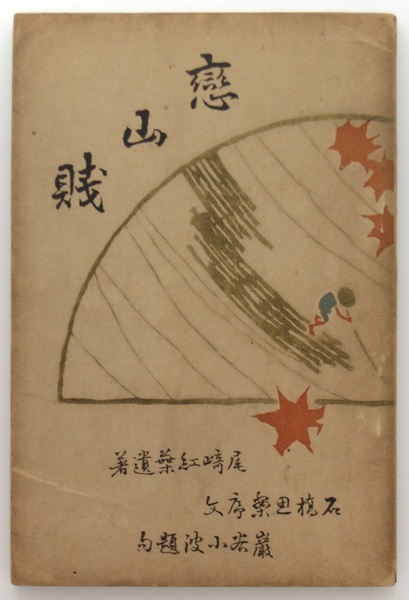 戀山賎
尾崎紅葉遺著
石橋思案序文
巖谷小波題句